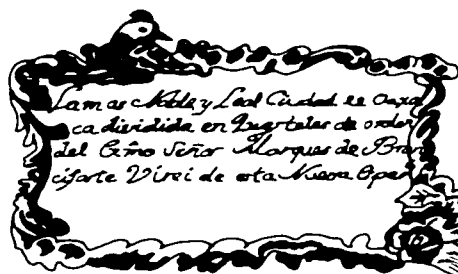 La mas Noble y Leal Ciudad de Oaxa
ca dividida en Quarteles de orden
del Exmo Señor Marques de Bran
ciforte Virei de esta Nueva Espa